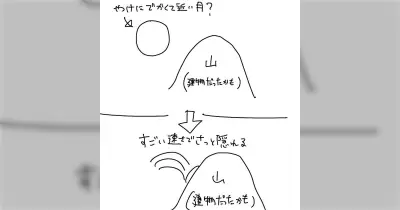 やけにでかくて近い月？
山
(建物だったかも)
すごい速さでさっと隠れる
山
(建物だったかも)